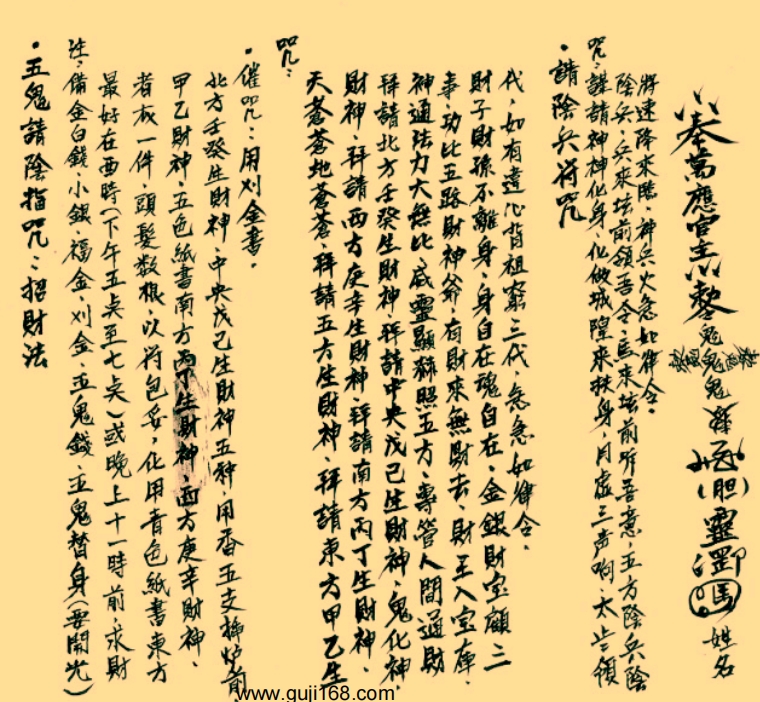 ·五鬼請陰指咒:招財法
注:備金白錢·小銀·福金·刈金·五鬼錢·五鬼替身(要開光)
最好在酉時(下午五点至七点)或晚上十一時前·求財
者衣一件·頭髮数根·以符包妥·化用青色紙書東方
甲乙財神·五色紙書南方丙丁生財神·西方庚辛財神·
北方壬癸生財神·中央戊己生財神五種·用香五支插炉前
·催咒:用刈金書·
咒:
天蒼蒼地蒼蒼·拜請五方生財神·拜請東方甲乙生
財神·拜請西方庚辛生財神·拜請南方丙丁生財神·
拜請北方壬癸生財神·拜請中央戊己生財神·鬼化神
神通法力大無比·威靈顯赫照五方·專管人間通財
事·功比五路財神爺·有財來無財去·財王入宝庫·
財子財孫不離身·身自在魂自在·金銀財宝顧三
代·如有違心背祖窮三代·急急如律令·
·請陰兵符咒
咒:謹請神神化身·化做城隍來扶身·月虛三声响·大些領
陰兵·兵來坛前領吾令·馬來坛前听吾意·五方陰兵陰
將速降來臨·神兵火急如律令·
奉萬應官主 鬼鬼鬼 (胆)靈 馮 姓名
www.guji168.com